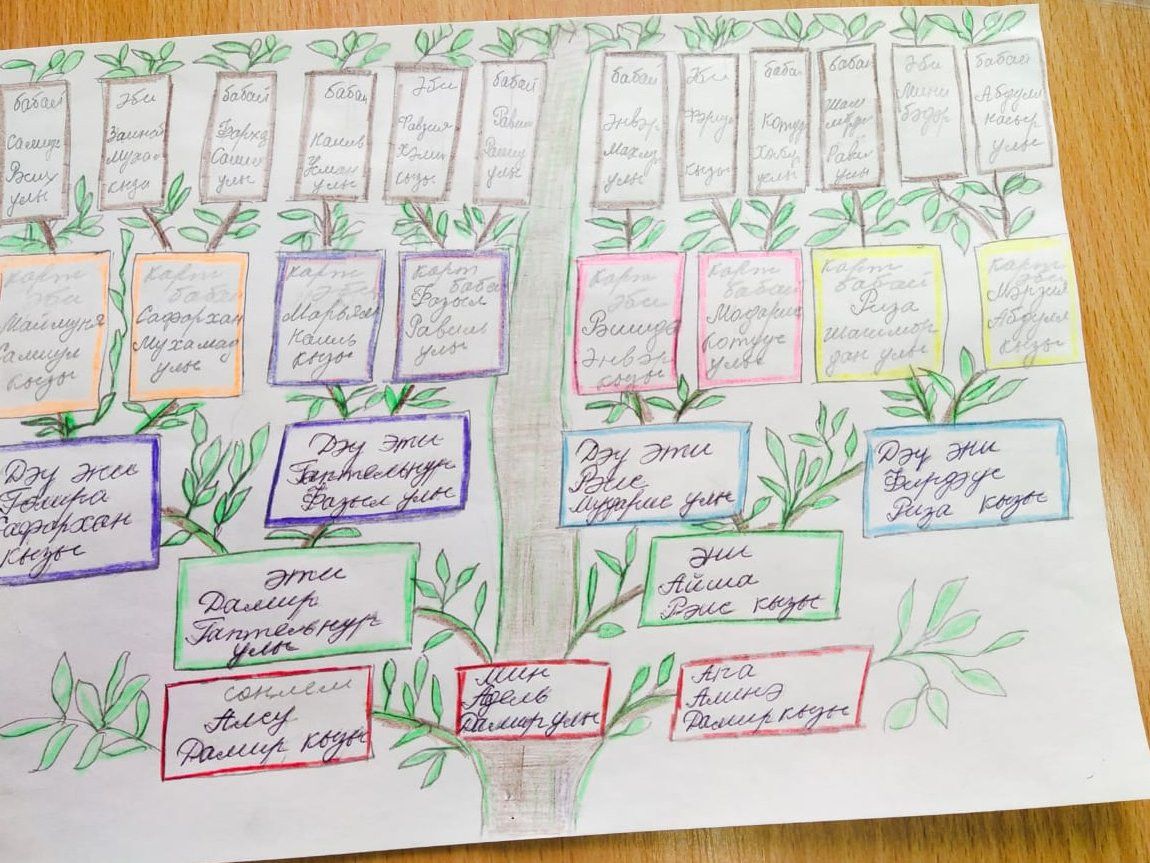 бабай
Самигул
улы
Әби
Зайнәп
мухам
кызы
бабай
Сафа
улы
бабай
Наиль
улы
Әби
Равзия
Хәлил
кызы
бабай
Равил
улы
бабай
Энвәр
Махмуд
улы
Әби
Фәридә
кызы
бабай
Котдус
улы
бабай
Шай
мурдан
улы
Әби
Мини
бәдәр
бабай
Абдулл
Насыр
улы
карт
Әби
Маймуня
Самигул
кызы
карт
бабай
Сафархан
Мухамад
улы
карт
Әби
Марьям
Наиль
кызы
карт
бабай
Фазыл
Равиль
улы
карт
Әби
Рәшидә
Энвәр
кызы
карт
бабай
Мадарис
котдус
улы
карт
бабай
Риза
шаймор
дан улы
карт
Мәрзия
Абдулл
кызы
Дәу әни
Гәлира
Сафархан
кызы
Дәу әти
Гаптельнур
Фазыл улы
Дәу әти
Рәис
Мударис улы
Дәу әни
Фирдәус
Риза кызы
әти
Дамир
Гаптельнур
улы
әни
Айша
Рәис кызы
сеңлем
Алсу
Дамир кызы
мин
Адель
Дамир улы
Апа
Аминә
Дамир кызы